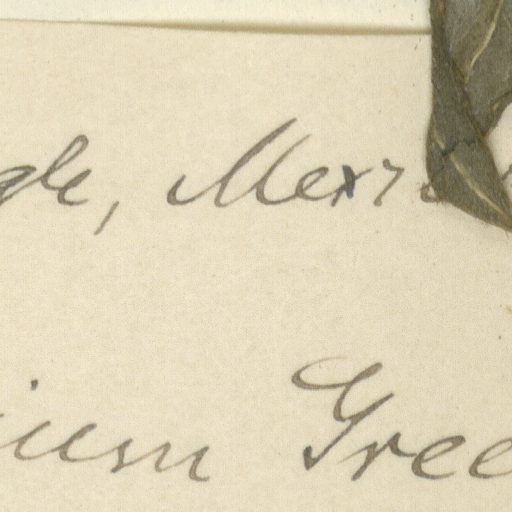 gle, Mexi
ium Gree